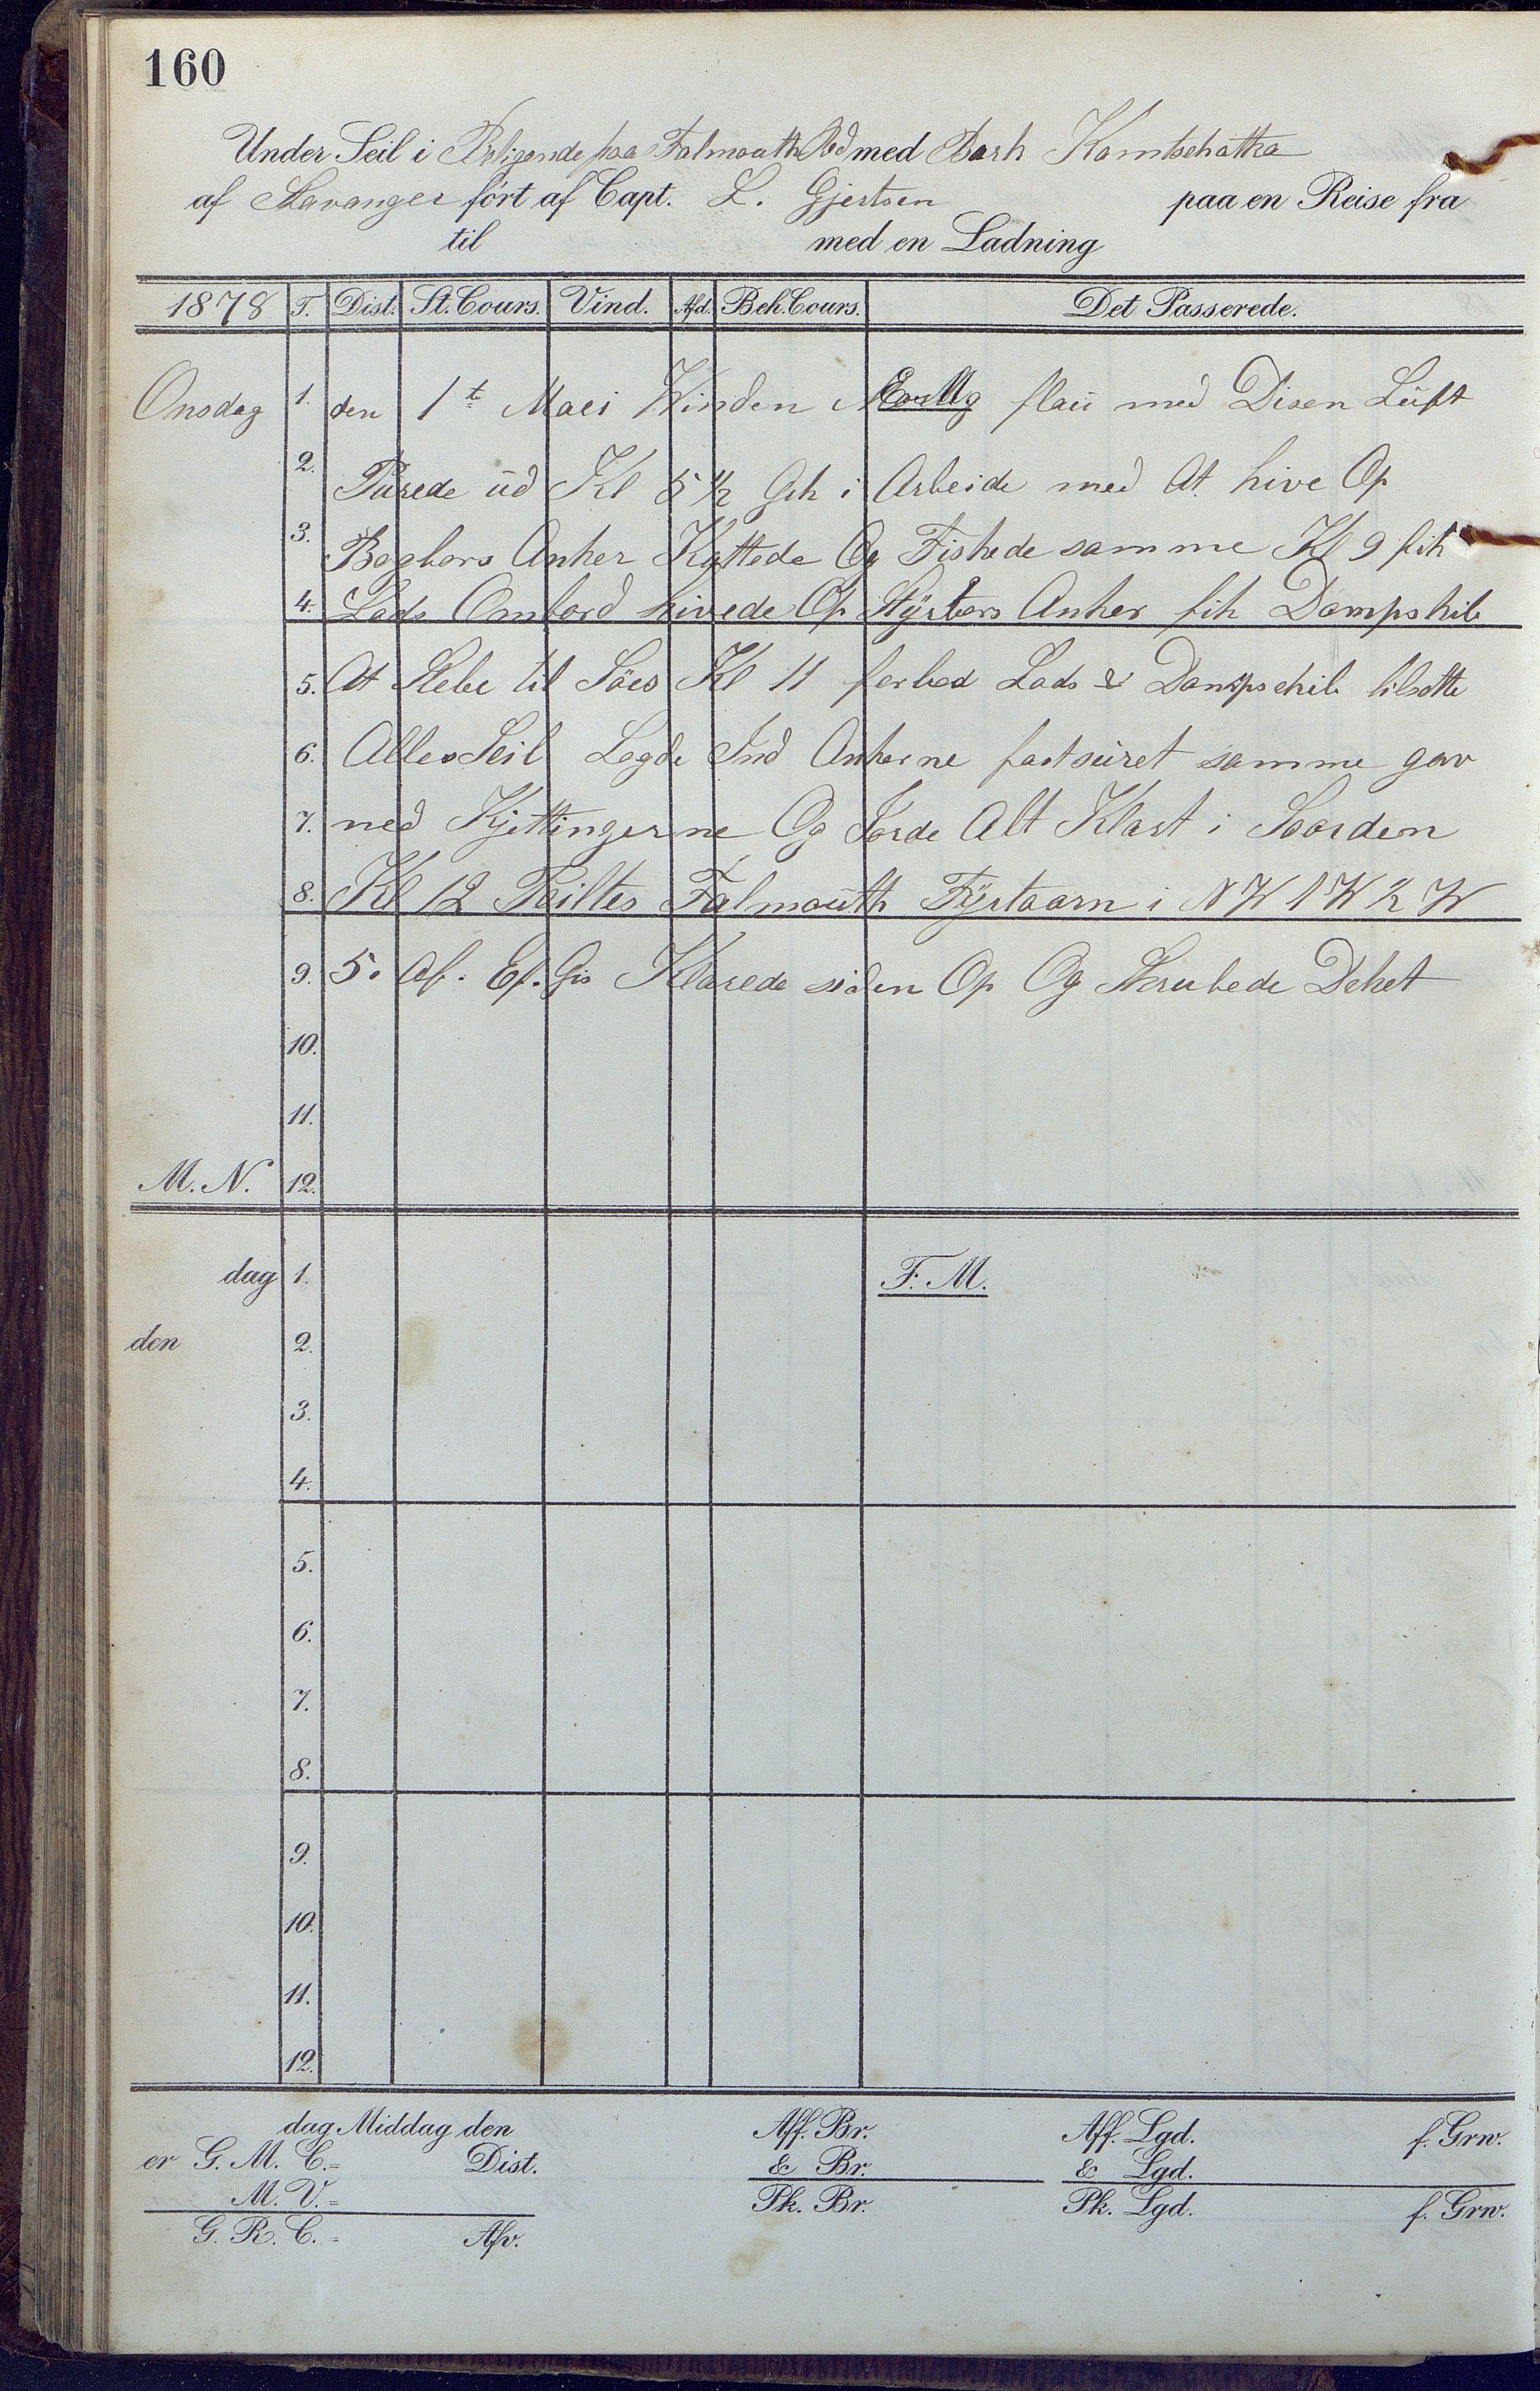 160
Under Seil i Beligende paa Falmouth Red med Bark Kamtschatka
af Stavanger ført af Capt. L. Gjertsen paa en Reise fra
til med en Ladning
1878 T. Dist. St. Cours. Vind. Afd. Beh. Cours. Det Passerede.
Onsdag 1. den 1t Maei Winden flaü med Disen Lüft
2. Purede üd Kl 5 1/2 Gik i Arbeide med At hive Op
3. Bagbors Anker Kattede Og Fiskede samme Kl 9 fik
4. Lods Ombord hivede Op Styrbors Anker fik Dampskib
5. At Slebe til Söes Kl 11 forlod Lods & Dampskib tilsatte
6. Alle Seil Legde Ind Ankerne fastsüret samme gav
7. ned Kjettingerne Og Jorde Alt Klart i Joorden
8. Kl 12 Peiltes Falmoüth Fyrtaarn i N W 1/2 W
9. 5. Af. Ef. Gis Klarede siden Op Og Skrubede Deket
10.
11.
M. N. 12.
dag 1. F. M.
den 2.
3.
4.
5.
6.
7.
8.
9.
10.
11.
12.
dag Middag den Aff. Br. Aff. Lgd. f. Grw.
er G. M. C.= Dist. & Br. & Lgd.
M. V.= Pk. Br. Pk. Lgd. f. Grw.
G. R. C.= Afv.